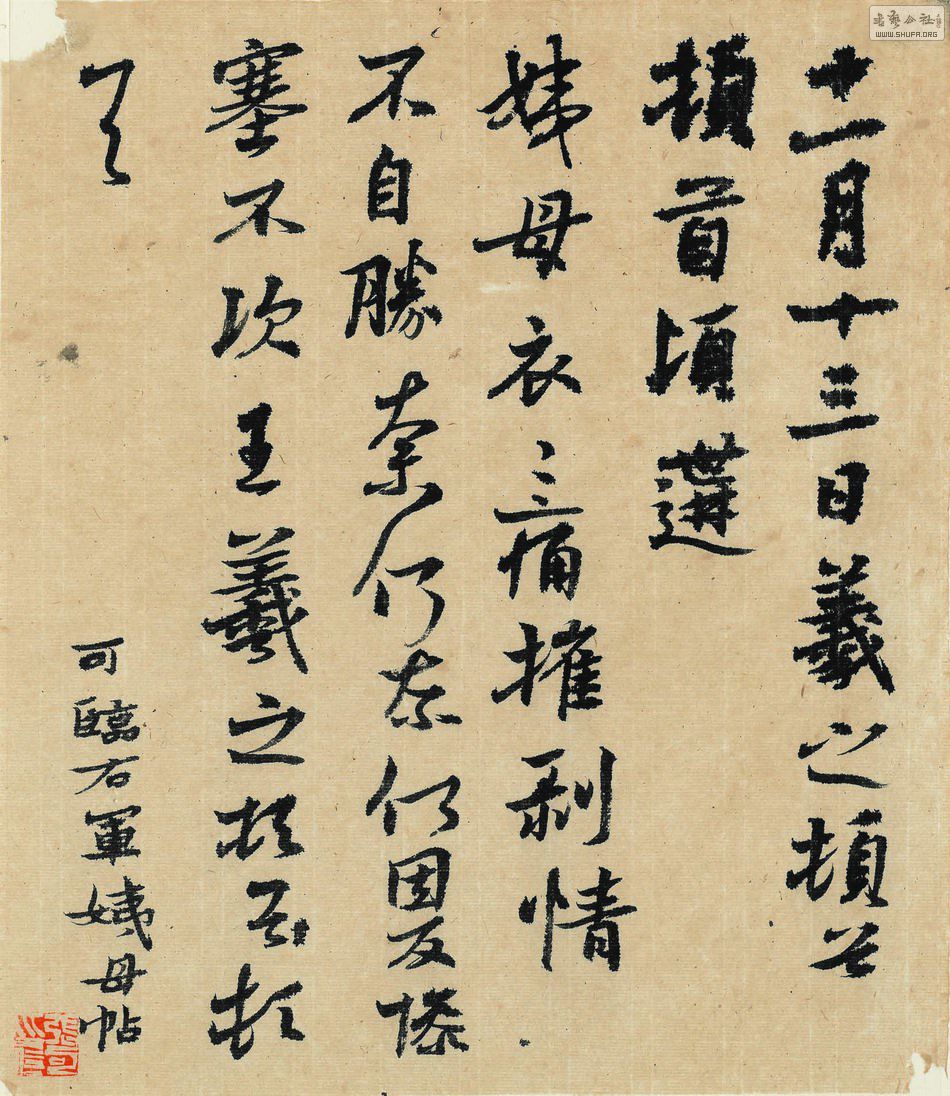 十一月十三日羲之頓首
頓首頃遘
姨母哀〻痛摧剥情
不自勝奈何奈何因反慘
塞不次王羲之頓首頓
首
可臨右軍姨母帖
书艺公社
WWW.SHUFA.ORG